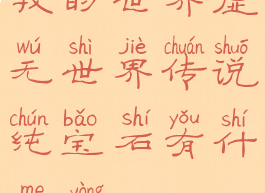 我的世界虚
wú shì jiè chuán shuō
无世界传说
chún bǎo shí yǒu shí
纯宝石有什
me yòng